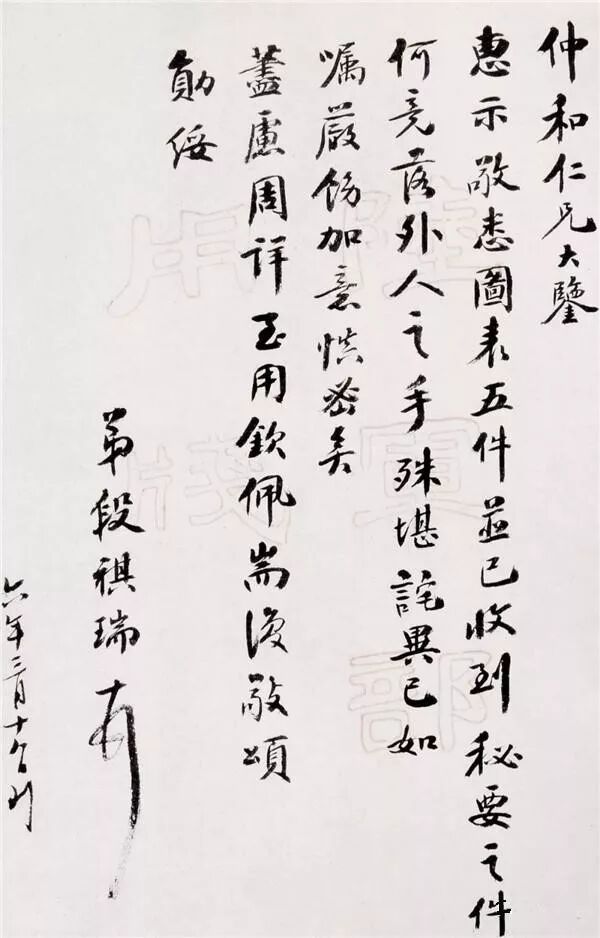 仲和仁兄大鑒
惠示敬悉圖表五件並已收到秘要之件
何竟落外人之手殊堪詫異已如
嘱嚴飭加意慎密矣
藎慮周詳至用欽佩耑復敬頌
勛綏
弟段祺瑞
六年三月十
陸軍部
用牋